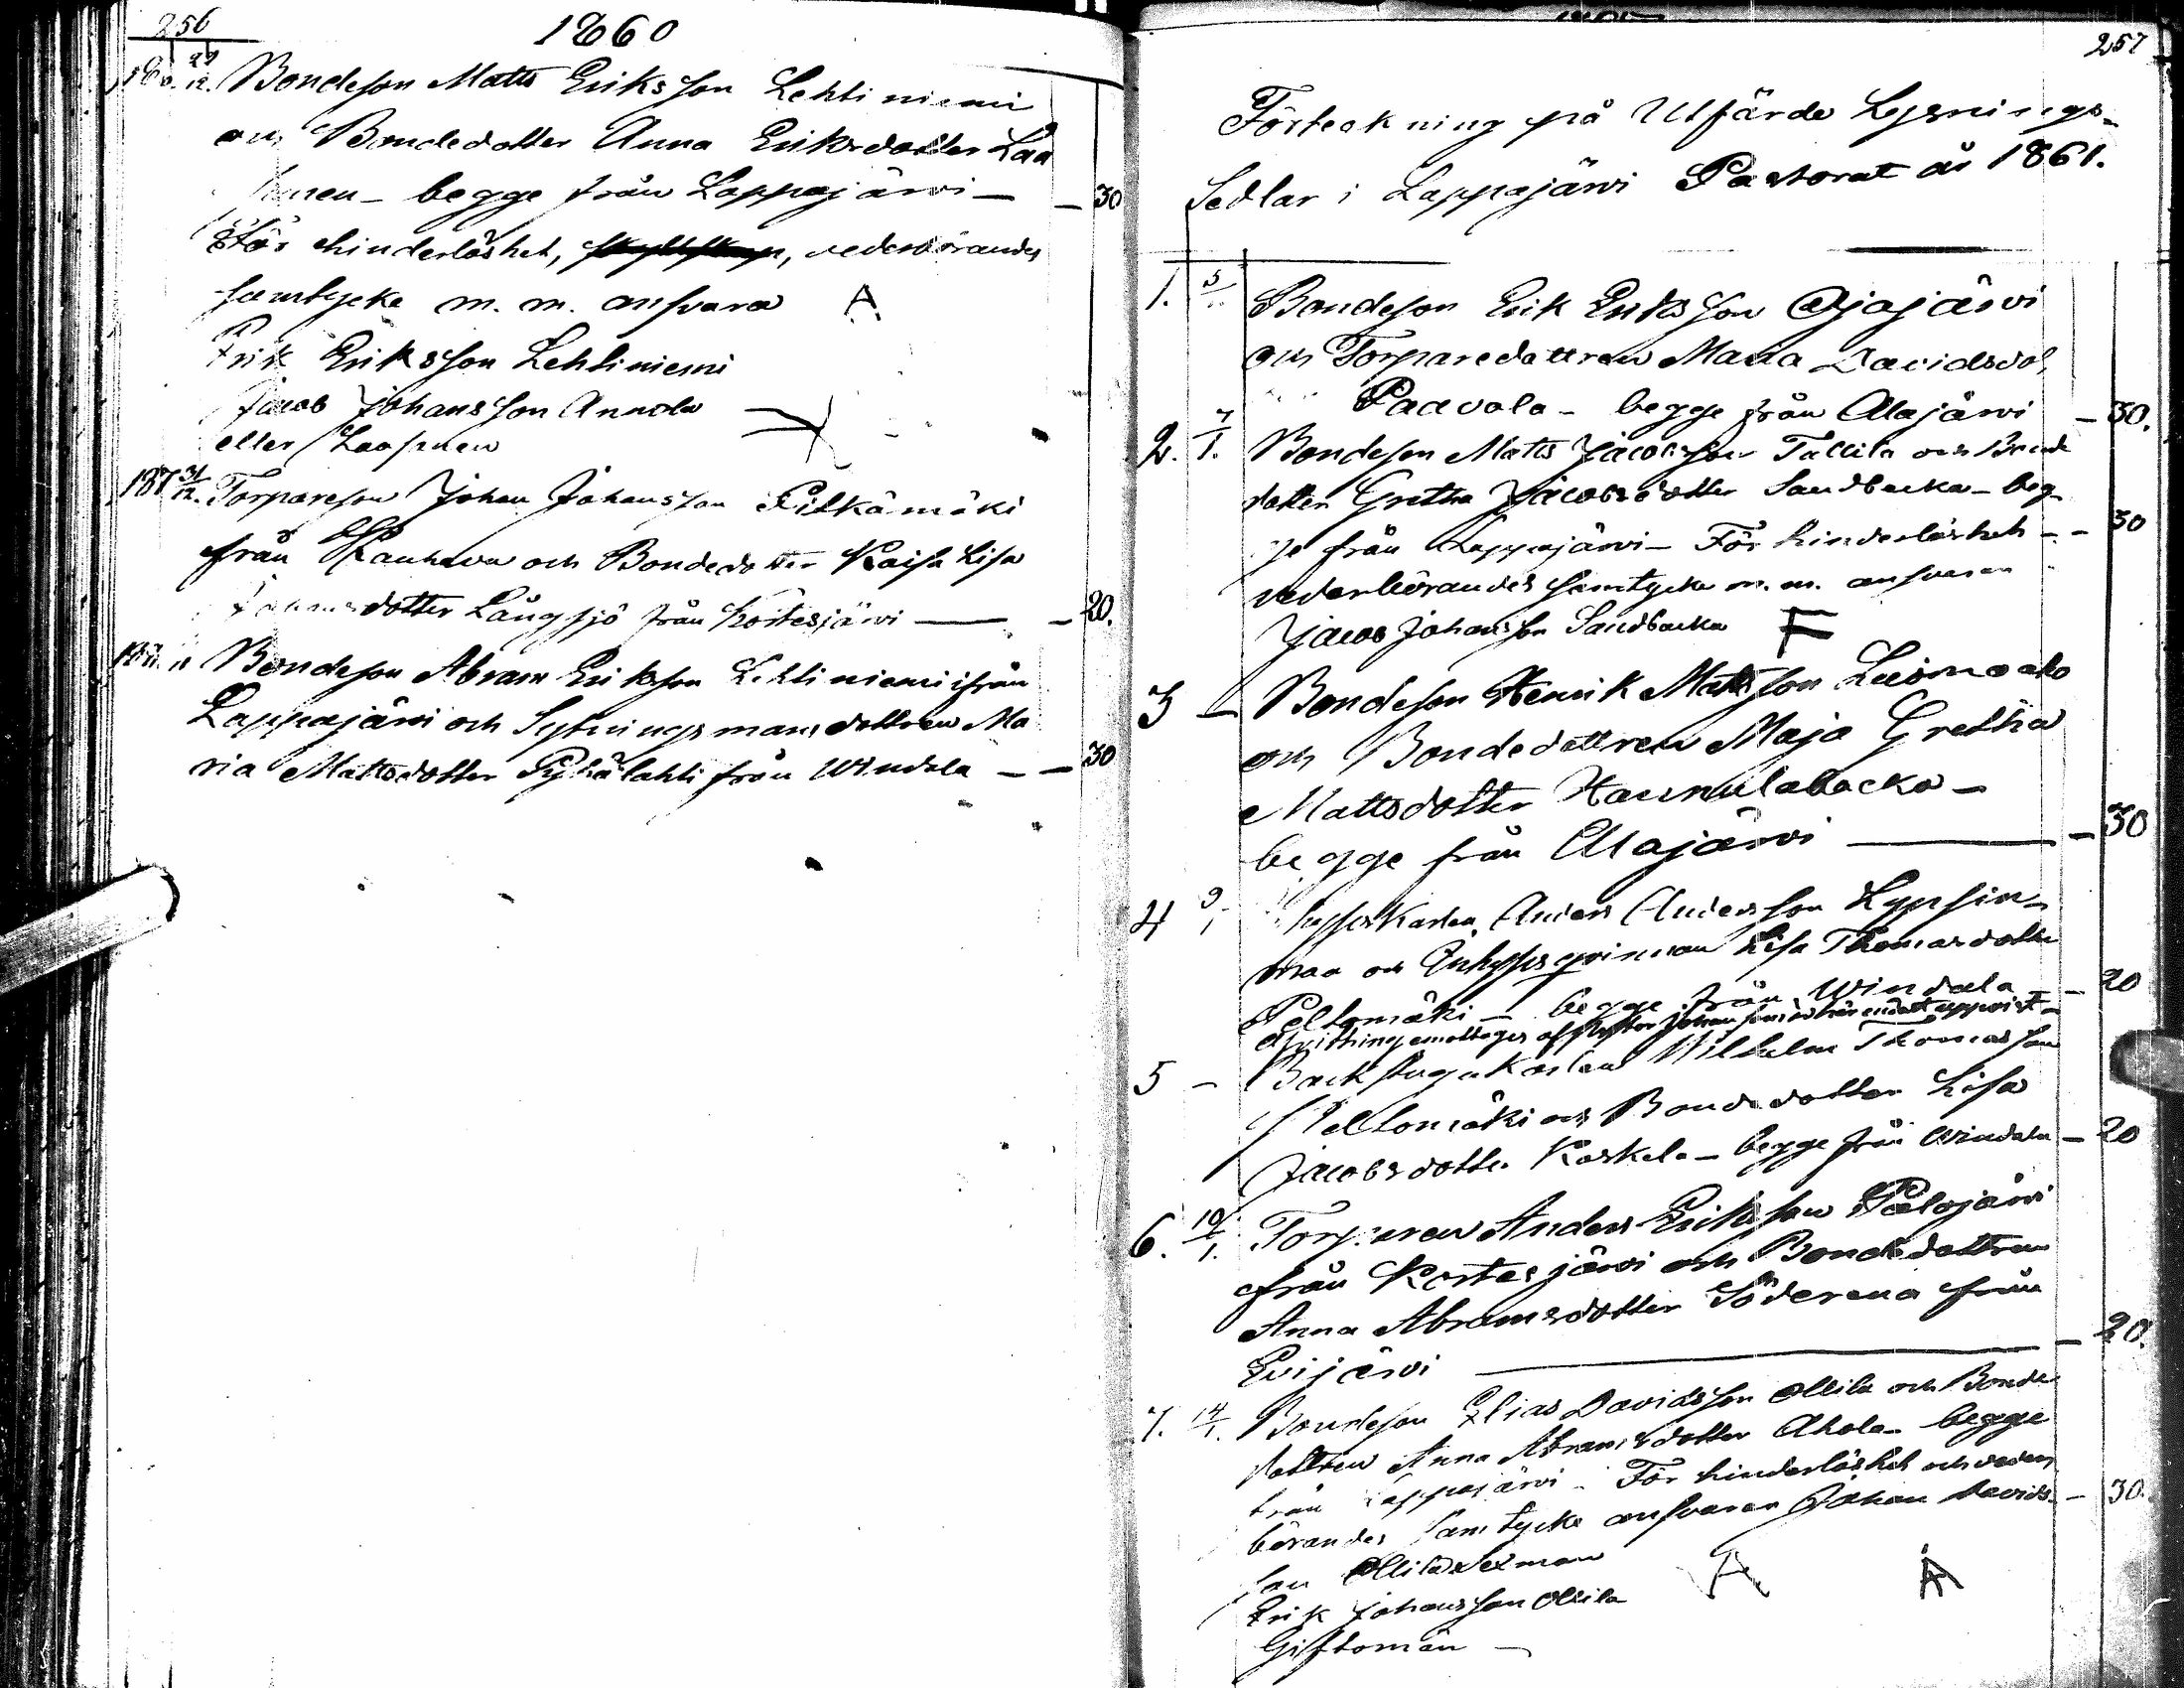 256
1860
29
12. Bondeson Matts Eriksson Lehtiniemi
och Bondedotter Anna Eriksdotter Laa
begge från Lappajärvi — — 30
För hinderlöshet, vederbörandes
samtycke m. m. ansvara
Erik Eriksson Lehtiniemi
Jacob Johansson Annala
eller
187 31/12. Torpareson Johan Johansson Pitkämäki
från Kauhava och Bondedotter Kaisa Lisa
Johansdotter Långsjö från Kortesjärvi — — 20.
Bondeson Abram Eriksson Lehtiniemi ifrån
Lappajärvi och Sytningsmansdottren Ma
ria Mattsdotter Pyhälahti från Windala — — 30
257
Förteckning på Utfärde Lysnings-
Sedlar i Lappajärvi Pastorat år 1861.
1. 5 Bondeson Erik Eriksson Ojajärvi
och Torparedottren Maria Davidsdot
Paavola - begge från Alajärvi — 30.
2. 7/1. Bondeson Matts Jacobsson Tallila och Bonde
dotter Gretha Jacobsdotter Sandbacka - beg
ge från Lappajärvi - För hinderlöshet — 30
vederbörandes samtycke m. m. ansvarar
Jacob Johansson Sandbacka
3 — Bondeson Henrik Mattsson Luomaaho
och Bondedottren Maja Gretha
Mattsdotter Hannulabacka -
begge från Alajärvi — — 30
4 9/1 Anders Andersson Lypsin-
maa och Lisa Thomasdotter
Peltomäki - begge från Windala — 20
5 — Backstugukarlen Wilhelm Thomasson
Peltomäki och Bondedotter Lisa
Jacobsdotter Koskela - begge från Windala — 20
6. 10/1. Torparen Anders Eriksson Palojärvi
från Kortesjärvi och Bondedottren
Anna Abramsdotter Söderena från
Evijärvi — — 20.
7. 14/1. Bondeson Elias Davidsson Ollila och Bonde
dottren Anna Abramsdotter Ahola - begge
från Lappajärvi - För hinderlöshet och veder
börandes samtycke ansvarar Johan Davids- — 30.
son Ollila Sexman
Erik Johansson Ollila
Giftoman —